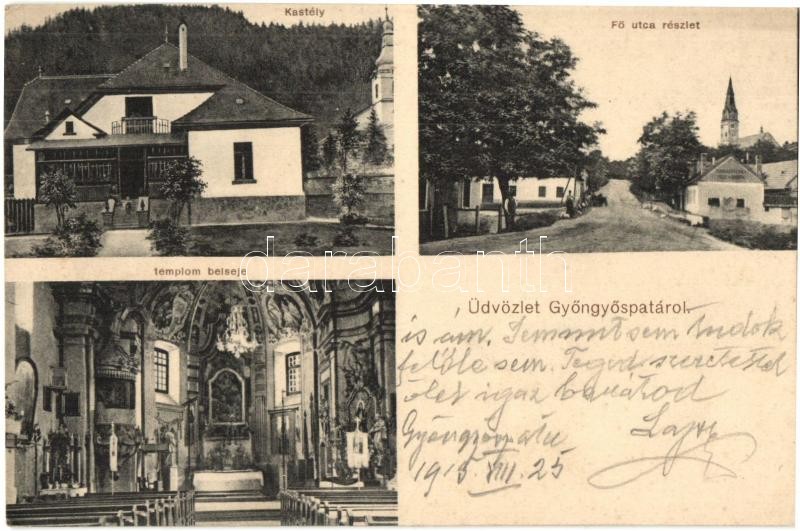 Kastély
Fő utca részlet
darabanth
templom belseje
Üdvözlet Gyöngyöspatáról.
is ám. Semmit sem tudok
felőle sem. Téged szeretettel
ölel igaz barátod
Gyöngyöspata Lajos
1915 VIII. 25